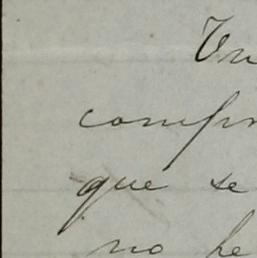 Un
compr
que se
no he